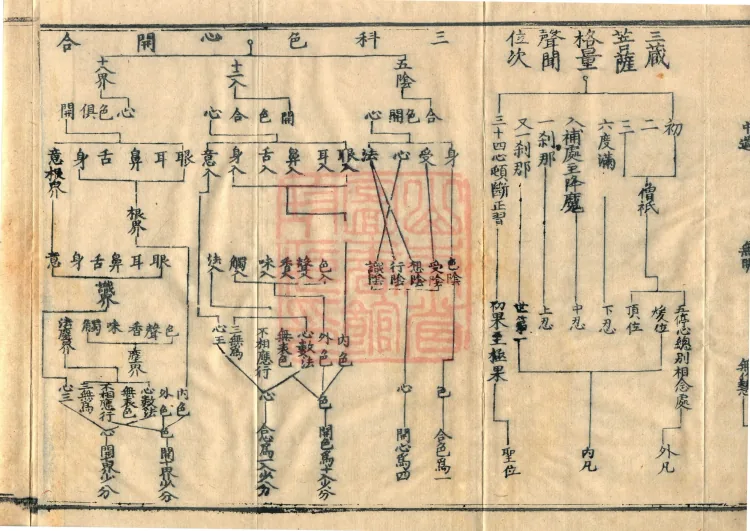 三藏
菩薩
格量
聲聞
位次
初
二
三
僧祇
六度滿
入補處至降魔
一刹那
又一刹那
三十四心頓斷正習
五停心總別相念處
煖位
頂位
下忍
中忍
上忍
世第一
初果至極果
外凡
內凡
聖位
三科色心開合
五陰
合色開心
身
受
心
法
色陰
受陰
想陰
行陰
識陰
色
心
合色爲一
開心爲四
十二入
開色合心
眼入
耳入
鼻入
舌入
身入
意入
色入
聲入
香入
味入
觸入
法入
內色
外色
心數法
無表色
不相應行
三無爲
心王
色
心
開色爲十入少分
合心爲一入少分
十八界
心色俱開
眼
耳
鼻
舌
身
意根界
根界
眼
耳
鼻
舌
身
意
識界
色
聲
香
味
觸
法塵界
塵界
內色
外色
心數法
無表色
不相應行
三無爲
色
心
開十界少分